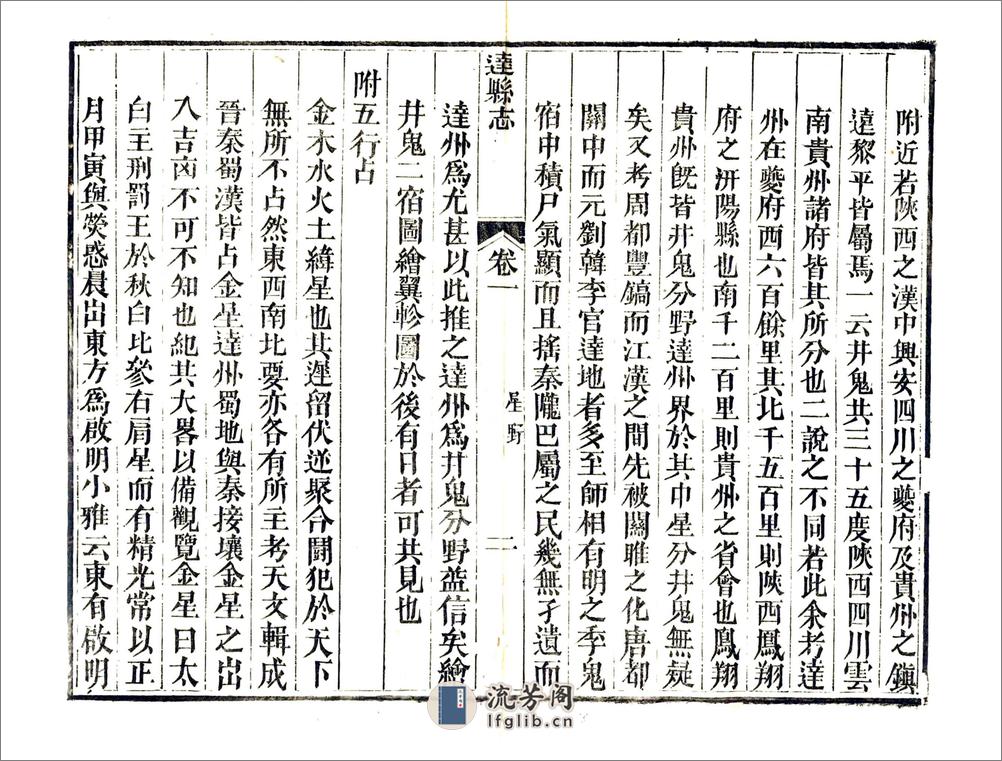 附近若陜西之漢中興安四川之夔府及貴州之鎮
遠黎平皆屬焉一云井鬼共三十五度陜西四川雲
南貴州諸府皆其所分也二說之不同若此余考達
州在夔府西六百餘里其北千五百里則陜西鳳翔
府之汧陽縣也南千二百里則貴州之省會也鳳翔
貴州既皆井鬼分野達州界於其中星分井鬼無疑
矣又考周都豐鎬而江漢之間先被關雎之化唐都
關中而元劉韓李官達地者多至師相有明之季鬼
宿中積尸氣顯而且搖秦隴巴屬之民幾無孑遺而
達縣志
卷一
星野
二
達州爲尤甚以此推之達州爲井鬼分野益信矣繪
井鬼二宿圖繪翼軫圖於後有目者可共見也
附五行占
金木水火土緯星也其遲留伏逆聚合鬬犯於天下
無所不占然東西南北要亦各有所主考天文輯成
晉秦蜀漢皆占金星達州蜀地與秦接壤金星之出
入吉凶不可不知也紀其大畧以備觀覽金星曰太
白主刑罰王於秋白比參右肩星而有精光常以正
月甲寅與熒惑晨出東方爲啟明小雅云東有啟明
流芳阁
lfglib.cn